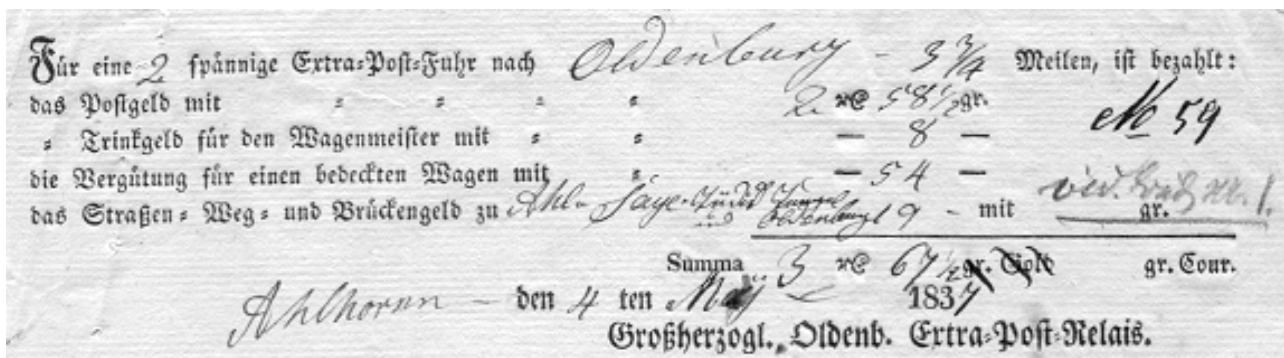 Für eine 2 spännige Extra=Post=Fuhr nach Oldenburg – 3 3/4 Meilen, ist bezahlt:
das Postgeld mit " " " " 2 rC 58 1/2 gr.
№ 59
" Trinkgeld für den Wagenmeister mit " " — 8 —
die Vergütung für einen bedeckten Wagen mit " — 54 —
das Straßen= Weg= und Brückengeld zu Ahl. Sage und Oldenburg 9 - mit gr.
Summa 3 rC 67 1/2 gr. Gold gr. Cour.
Ahlhorn – den 4 ten May 1837
Großherzogl. Oldenb. Extra=Post=Relais.